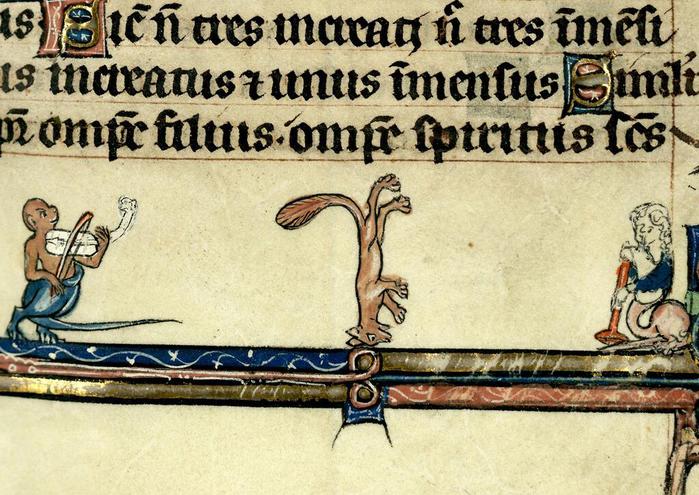 us Sic ñ tres increatꝫ ñ tres īmēsi
us increatus ⁊ unus īmensus Simili
pr̄ omp̄c filius · omp̄s spiritus scs̄